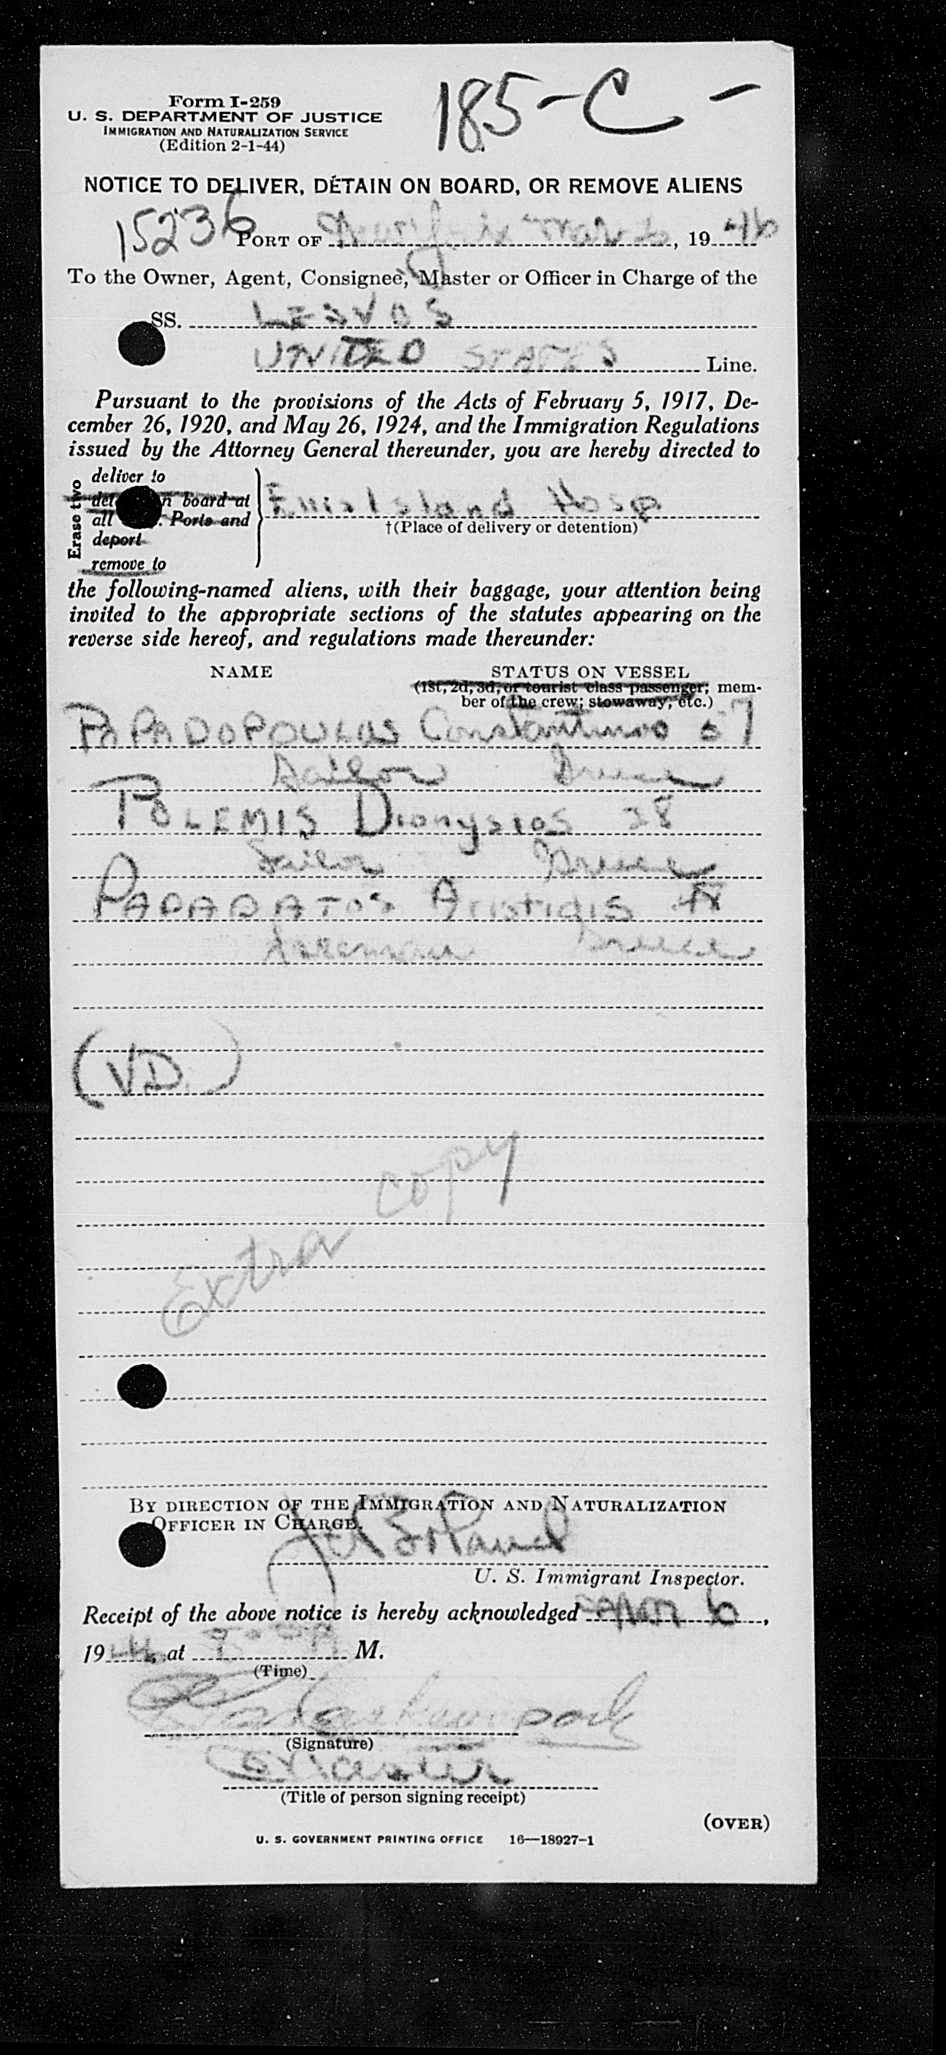 Form I-259
U. S. DEPARTMENT OF JUSTICE
IMMIGRATION AND NATURALIZATION SERVICE
(Edition 2-1-44)
185-C-
NOTICE TO DELIVER, DETAIN ON BOARD, OR REMOVE ALIENS
15236
PORT OF New York Mar 6, 1946
To the Owner, Agent, Consignee, Master or Officer in Charge of the
SS. LESVOS
UNITED STATES Line.
Pursuant to the provisions of the Acts of February 5, 1917, De-
cember 26, 1920, and May 26, 1924, and the Immigration Regulations
issued by the Attorney General thereunder, you are hereby directed to
Erase two
deliver to
board at
all Ports and
deport
remove to
Ellis Island Hosp
†(Place of delivery or detention)
the following-named aliens, with their baggage, your attention being
invited to the appropriate sections of the statutes appearing on the
reverse side hereof, and regulations made thereunder:
NAME STATUS ON VESSEL
(1st, 2d, 3d, or tourist class passenger; mem-
ber of the crew; stowaway, etc.)
PAPADOPOULOS Constantinos 57
Sailor Greece
POLEMIS Dionysios 38
Sailor Greece
PAPADATOS Aristidis
Greece
(VD.)
Extra copy
BY DIRECTION OF THE IMMIGRATION AND NATURALIZATION
OFFICER IN CHARGE.
U. S. Immigrant Inspector.
Receipt of the above notice is hereby acknowledged 6,
19 at M.
(Time)
(Signature)
Master
(Title of person signing receipt)
(OVER)
U. S. GOVERNMENT PRINTING OFFICE 16—18927-1